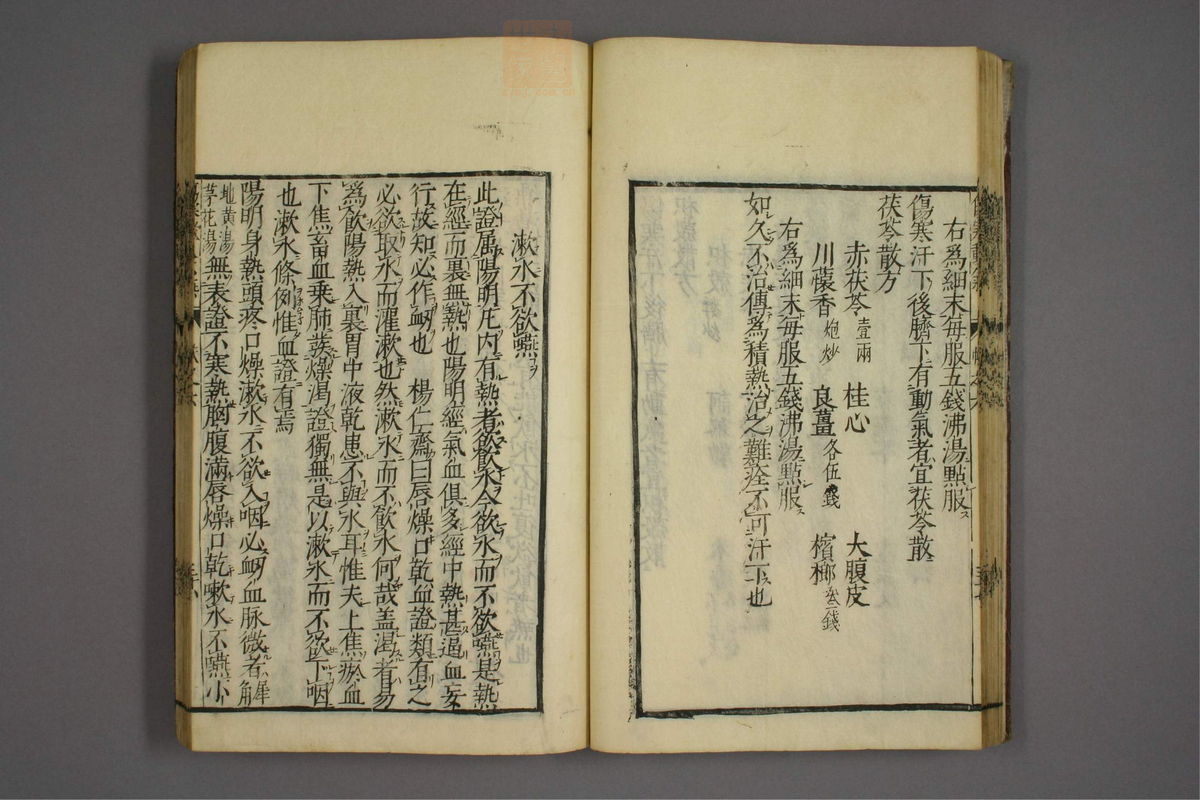 右爲細末每服五錢沸湯點服
傷寒汗下後臍下有動氣者宜茯苓散
茯苓散方
赤茯苓壹兩 桂心 大腹皮
川懷香炮炒 良薑各伍錢 檳榔叁錢
右爲細末每服五錢沸湯點服
如久不治傳爲積熱治之難痊不可汗下也
漱水不欲嚥
此證属陽明凡内有熱者欲飲水今欲水而不欲嚥是熱
在經而裏無熱也陽明經氣血俱多經中熱甚逼血妄
行故知必作衂也 楊仁齋曰唇燥口乾血證類有之
必欲取水而灌漱也然漱水而不飲水何哉盖渴者易
爲飲陽熱入裏胃中液乾患不與水耳惟夫上焦瘀血
下焦畜血乗肺燥渴證獨無是以漱水而不欲下咽
也漱水條例惟血證有焉
陽明身熱頭疼口燥漱水不欲入咽必衂血脉微者犀角
地黄湯茅花湯無表證不寒熱胸腹滿唇燥口乾嗽水不嚥小